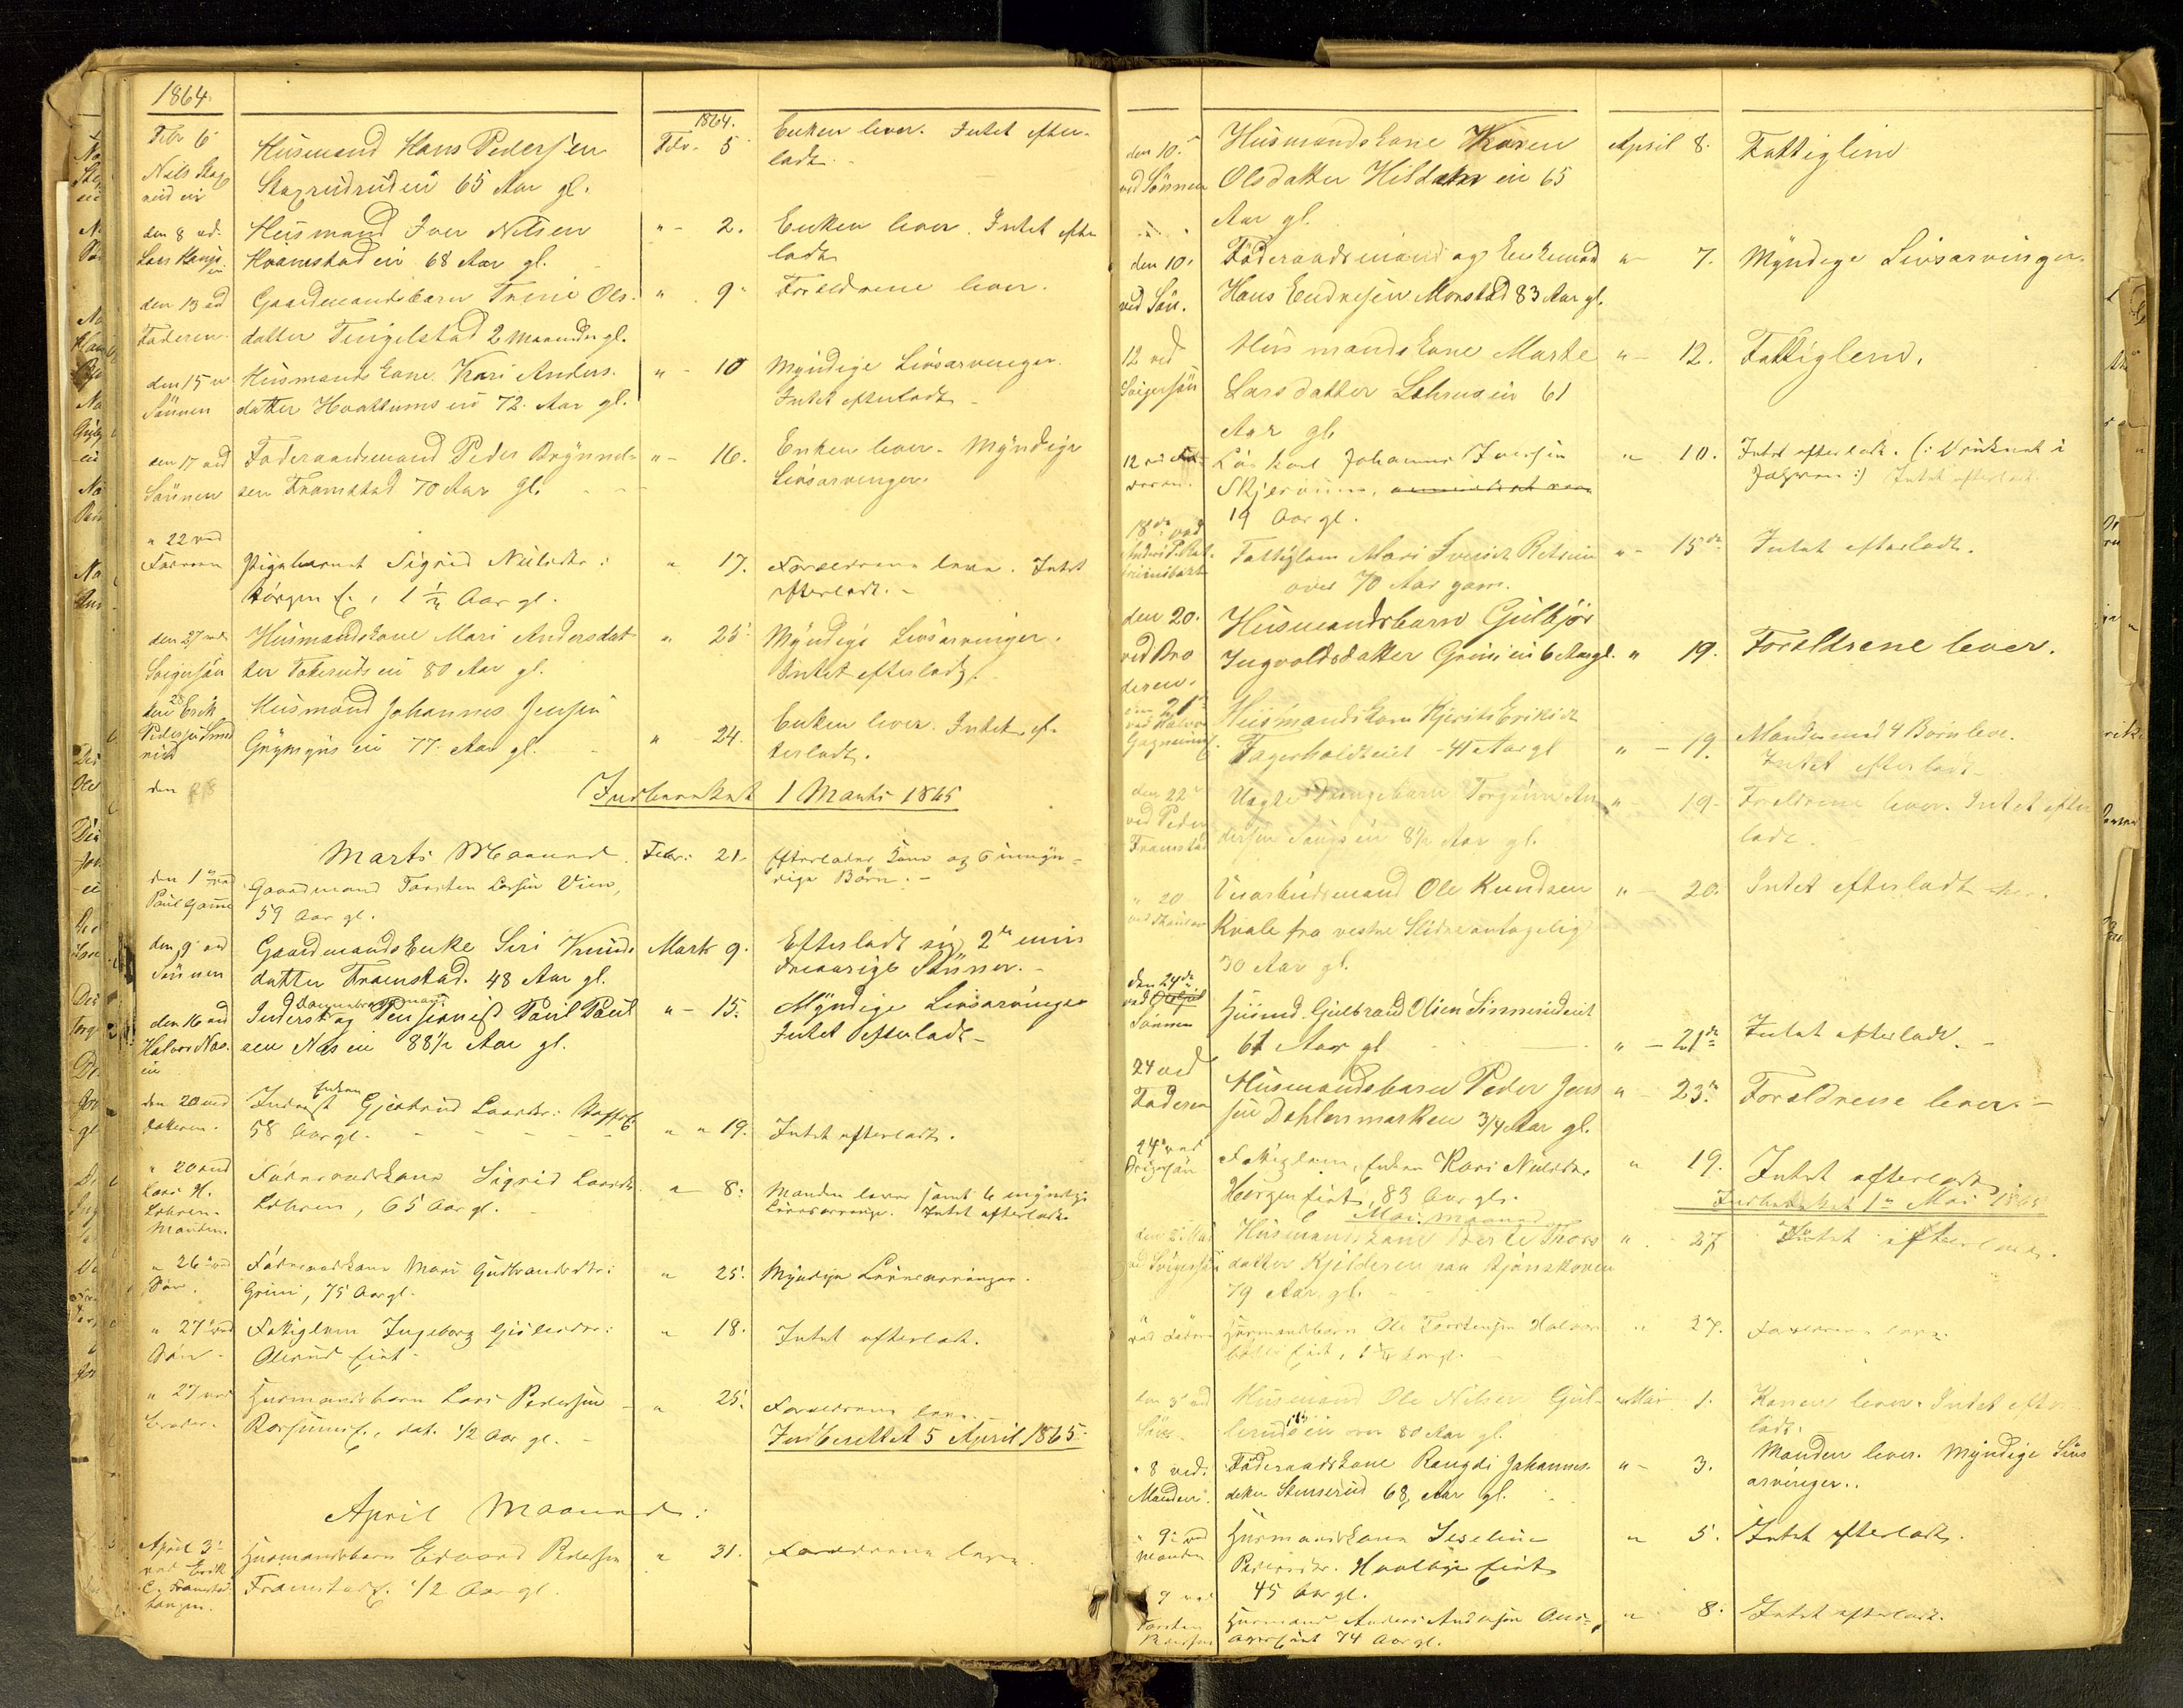 1864.
1864.
Febr 6
Nils Stag
rud ei
Husmand Hans Pedersen
Stagrudrud ei 65 Aar gl.
Febr. 5
Enken lever. Intet efter-
ladt.
den 8 ved
Lars
Husmand Iver Nilsen
Hvamstad ei 68 Aar gl.
" - 2.
Enken lever. Intet efter
ladt
den 13 ved
Faderen
Gaardmandsbarn Trine Ols.
datter Tingelstad 2 Maander gl.
" 9
Foreldrene lever.
den 15 v
Sönnen
Husmandskone Kari Anders.
datter Hvattums ei 72. Aar gl.
" - 10
Myndige Livsarvinger.
Intet efterladt
den 17 ved
Sönnen
Föderaadsmand Peder Brynnel-
sen Framstad 70 Aar gl.
" - 16.
Enken lever. Myndige
Livsarvinger.
" 22 ved
Faderen
Pigebarnet Sigrid Nielsdtr:
1 1/2 Aar gl.
" 17.
Foreldrene lever. Intet
efterladt. -
den 27 ved
Svigersön
Husmandskone Mari Andersdat
ter ei 80 Aar gl.
" 25
Myndige Livsarvinger.
Intet efterladt.
den 28 Erik
Pedersen
rud
Husmand Johannes Jensen
Grymyr ei 77. Aar gl.
" 24.
Enken lever. Intet ef-
terladt.
den 28
Indberettet 1 Marts 1865
Marts Maaned.
den 1 ved
Paul
Gaardmand Torsten Larsen Vien,
59 Aar gl.
Febr: 21.
Efterlader Kone og 6 umyn-
dige Börn. -
den 9 ved
Sönnen
Gaardmands Enke Siri Knuds
datter Framstad. 48 Aar gl.
Marts 9.
Efterladt sig 2de min
dreaarige Sönner. -
den 16 ved
Halvor Næs.
ei
Inderst og Pensionist Paul Paul
sen Næs ei 88 1/2 Aar gl.
" - 15.
Myndige Livsarvinger
Intet efterladt -
den 20 ved
Inderst Enken Gjertrud Larsdtr:
58 Aar gl.
" " 19.
Intet efterladt.
" 20 ved
Lars H.
Lohren
Manden.
Föderaadskone Sigrid Larsdtr
Lohren, 65 Aar gl.
" 8.
Manden lever samt 6 myndige
Livsarvinge. Intet efterladt
" 26 ved
Sön.
Föderaadskone Mari Gudbrandsdtr:
Grini, 75 Aar gl.
" 25.
Myndige Livsarvinger.
" 27 ved
Sön.
Fattiglem Ingeborg
Olerud eiet
" 18.
Intet efterladt.
" 27 ved
Husmandsbarn Lars Pedersen
1/2 Aar gl. -
" 25.
Foreldrene leve.
Indberettet 5 April 1865
April Maaned:
April 3
ved Erik
Framstad
Husmandsbarn Edvard Pedersen
Framstad. 1/2 Aar gl.
" 31.
Foreldrene leve.
den 10.
ved Sönnen
Husmandskone Karen
Olsdatter Hildahr ei 65
Aar gl.
April 8.
Fattiglem
den 10.
ved Sön.
Föderaadsmand og Enkemand
Hans Endresen Monstad 83 Aar gl.
" 7.
Myndige Livsarvinger.
12 ved
Svigersön
Husmandskone Marte
Larsdatter Lohrens ei 61
Aar gl.
" - 12.
Fattiglem.
12 ved Fa-
deren.
Johannes Iversen
Skjervum,
19 Aar gl.
" 10.
Intet efterladt. (: Druknet i
:) Intet efterladt.
18de ved
Fattiglem Mari Iversd
over 70 Aar gam.
" - 15de
Intet efterladt.
den 20.
ved Bro
deren.
Husmandsbarn Gulbjör
Ingvoldsdatter Grini ei 6 Aar gl.
" 19.
Foreldrene lever.
den 21
Husmandskone Kjersti Eriksd
Fagerholdteiet - 41 Aar gl
" - 19.
Manden med 4 Börn leve.
Intet efterladt -
den 22
ved Peder
Framstad
Uægte Drengebarn Torgrim An
dersen ei 8 1/2 Aar gl.
" - 19.
Foreldrene lever. Intet efter
ladt.
" 20
Ole Knudsen
Kvale fra vestre Slidre antagelig
30 Aar gl.
" - 20.
Intet efterladt
den 24de
ved
Sönnen
Husmd. Gulbrand Olsen
61 Aar gl
" - 21de
Intet efterladt. -
24 ved
Faderen
Husmandsbarn Peder Jen
sen Dahlenmarken 3/4 Aar gl.
" - 23.
Foreldrene lever. -
24 ved
Svigersön
Fattiglem, Enken Kari Nielsdtr
eiet, 83 Aar gl.
" 19.
Intet efterladt.
Indberettet 1 Mai 1865
Mai maaned
den 2 Mai
ved Svigersön
Husmandskone Berte Thors
datter Kjelderen paa Bjönskoven
79 Aar gl.
" 27
Intet efterladt.
Husmandsbarn Ole Torstensen
" 27.
Foreldrene leve.
den 3 ved
Sön.
Husmand Ole Nilsen Gul-
lerudsei over 80 Aar gl.
Mai 1.
Konen lever. Intet efter
ladt.
" 8 ved.
Manden.
Föderaadskone Rangdi Johannes.
datter Stenserud 68 Aar gl.
" - 3.
Manden lever. Myndige Livs
arvinger.
" 9 ved
Manden
Husmandskone Iseline
Pedersdtr. eiet
45 Aar gl.
" 5.
Intet efterladt.
9 ved
Torsten
Pedersen
Husmand Anders Andersen
74 Aar gl.
" 8.
Intet efterladt.